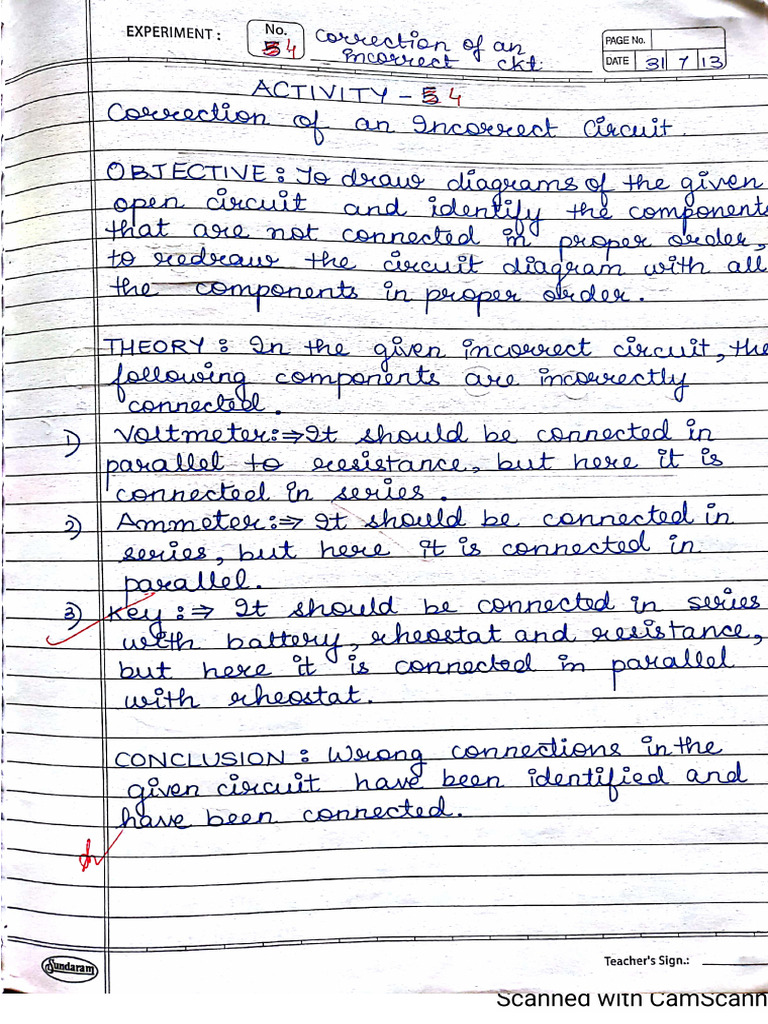 EXPERIMENT :
No.
4
Correction of an
incorrect ckt.
PAGE No.
DATE 31 7 13
ACTIVITY - 4
Correction of an Incorrect Circuit.
OBJECTIVE : To draw diagrams of the given
open circuit and identify the components
that are not connected in proper order,
to redraw the circuit diagram with all
the components in proper order.
THEORY : In the given incorrect circuit, the
following components are incorrectly
connected.
1) Voltmeter:⇒ It should be connected in
parallel to resistance, but here it is
connected in series.
2) Ammeter:⇒ It should be connected in
series, but here it is connected in
parallel.
3) Key:⇒ It should be connected in series
with battery, rheostat and resistance,
but here it is connected in parallel
with rheostat.
CONCLUSION : Wrong connections in the
given circuit have been identified and
have been connected.
Sundaram
Teacher's Sign.:
Scanned with CamScann